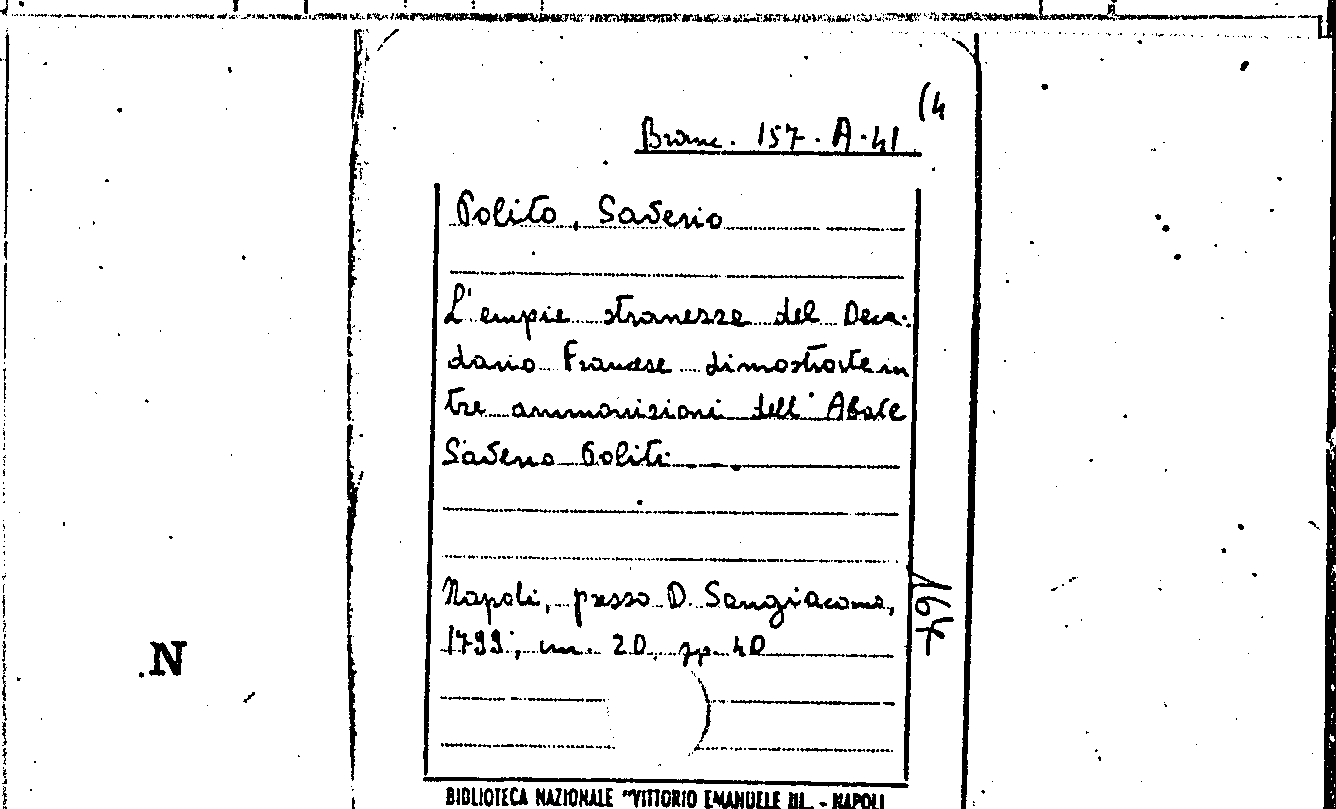 (4
Branc. 157. A. 41
Polito, Saverio
L'empie stranezze del Deca-
dario Francese dimostrate in
tre ammonizioni dell' Abate
Saverio Politi
Napoli, presso D. Sangiacomo,
1799; in. 20, pp. 40
167
.N
BIBLIOTECA NAZIONALE "VITTORIO EMANUELE III. - NAPOLI